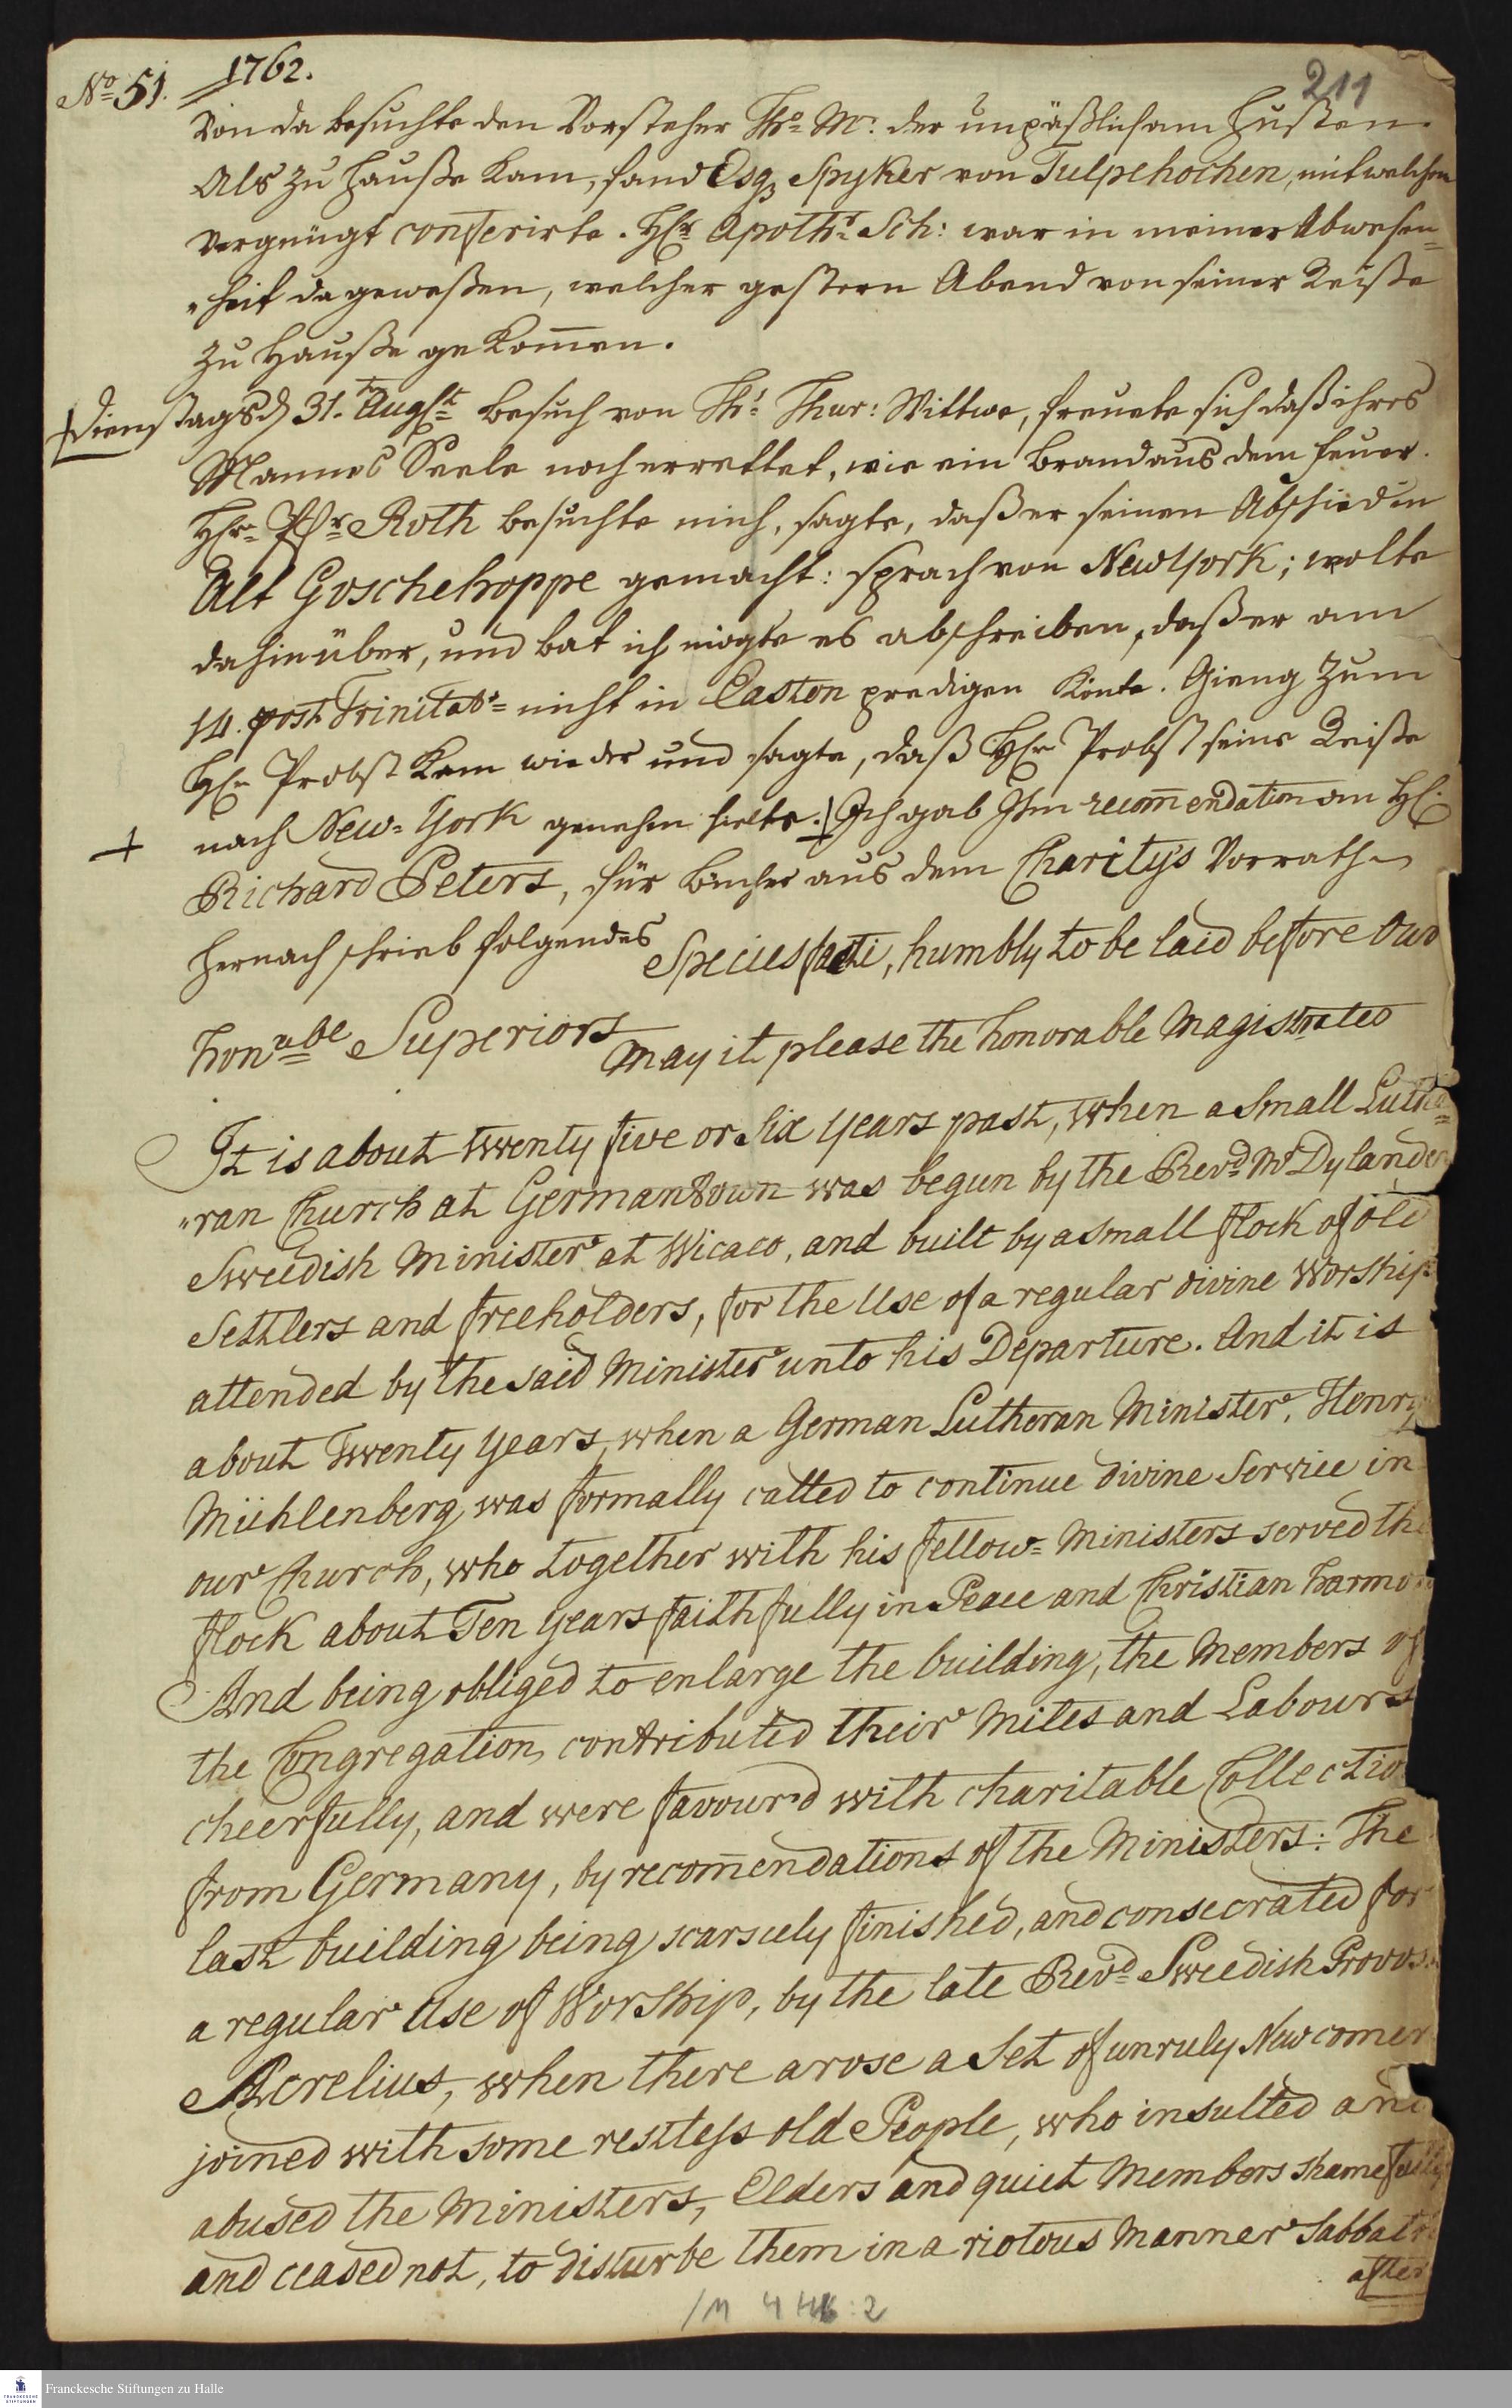 No 51. 1762. 211
Von da besuchte den Vorsteher Tho. Mr. der unpäßlich am Husten.
Als zu Hauße kam, fand Esqr Spyker von Tulpehocken, mit welchen
vergnügt conferirte. Hr. Apothr. Sch: war in meiner Abwesen=
"heit da geweßen, welcher gestern Abend von seiner Reiße
zu Hauße gekom̄en.
Dienstags d 31. Augst. Besuch von Thur: Wittwe, freuete sich daß ihres
Mannes Seele noch errettet, wie ein Brand aus dem feuer.
Hr. Pfr Roth besuchte mich, sagte, daß er seinen Abschied in
Alt Goschehoppe gemacht: sprach von Newyork; wolte
dahinüber, und bat ich mögte es abschreiben, daß er am
14. post Trinitat: nicht in Easton predigen könte. Gieng zum
Hr Probst kam wieder und sagte, daß Hr Probst seine Reiße
nach New=York genehm hielte. Ich gab Ihm recom̄endation an H.
Richard Peters, für Bücher aus dem Charitys Vorrath
hernach schrieb folgendes Species facti, humbly to be laid before Our
honrabe Superiors May it please the honorable Magistrates
It is about twenty five or Six years past, when a small Luthe=
"ran Church at Germantown was begun by the Revd. Mr Dylander
Sweedish Minister at Wicaco, and built by a small flock of old
Settlers and freeholders, for the Use of a regular divine Worship
attended by the said Minister unto his Departure. And it is
about Twenty years, when a German Lutheran Minister, Henry
Mühlenberg, was formally called to continue divine Service in
our Church, who together with his fellow=Ministers served the
flock about Ten years faithfully in Peace and Christian harmo
And being obliged to enlarge the building, the Members of
the Congregation contributed their Mites and Labours
cheerfully, and were favour'd with charitable Collectio
from Germany, by recom̄endations of the Ministers: The
last building being scarscely finished, and consecrated for
a regular Use of Worship, by the late Revd. Sweedish Provos
Acrelius, when there arose a Set of unruly Newcomer
joined with some restless old People, who insulted and
abused the Ministers, Elders and quiet Members shamefully
and ceased not, to disturbe them in a riotous Manner Sabbath
after
Franckesche Stiftungen zu Halle